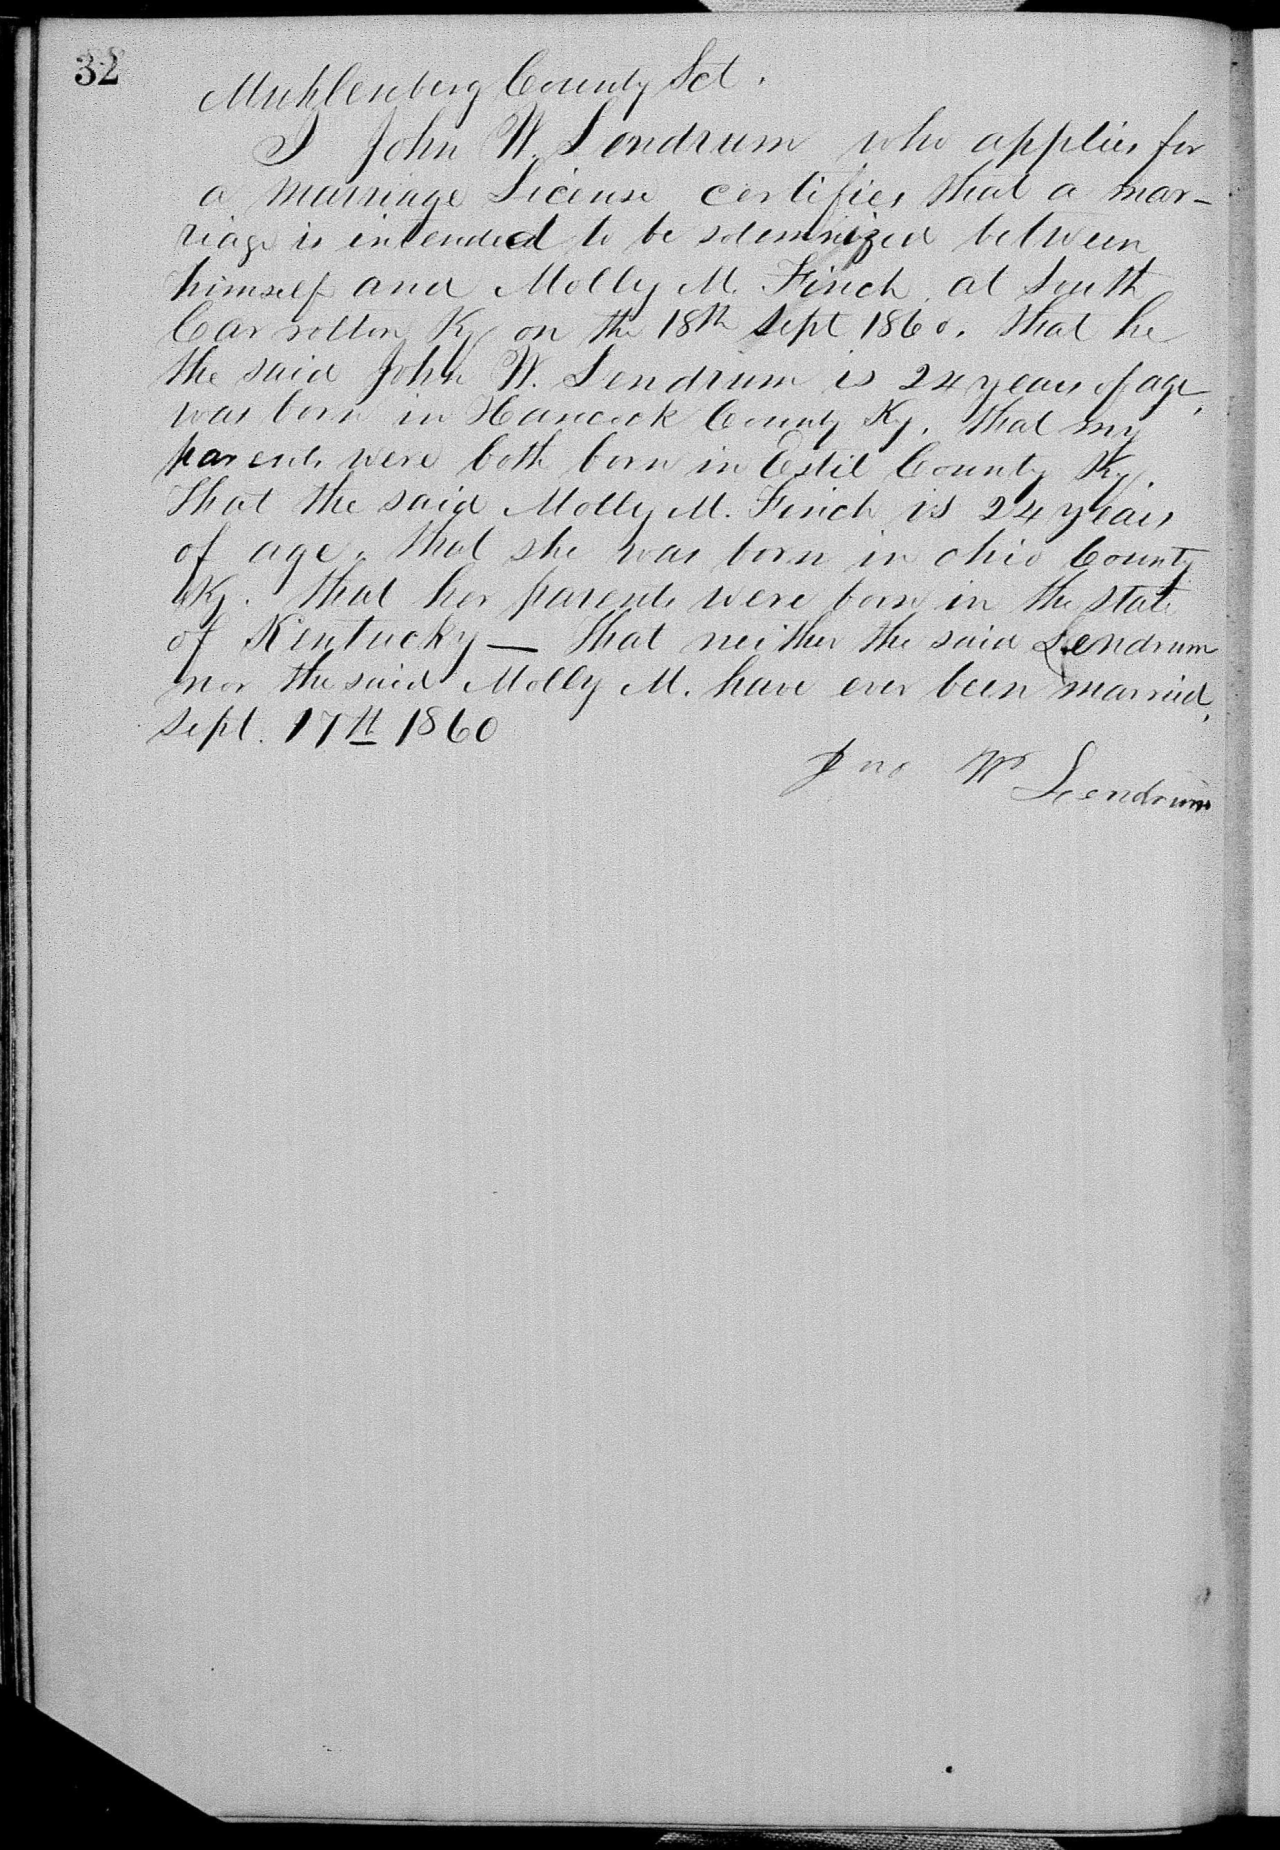 32
Muhlenberg County Sct.
I John W. Lendrum who applies for
a marriage License certifies that a mar-
riage is intended to be solemnized between
himself and Molly M. Finch at South
Carrolton Ky on the 18th Sept 1860. That he
the said John W. Lendrum is 24 years of age,
was born in Hancock County Ky. That my
parents were both born in Estil County Ky.
That the said Molly M. Finch is 24 years
of age. That she was born in ohio County
Ky. That her parents were born in the state
of Kentucky — That neither the said Lendrum
nor the said Molly M. have ever been married,
Sept. 17th 1860
Jno W Lendrum